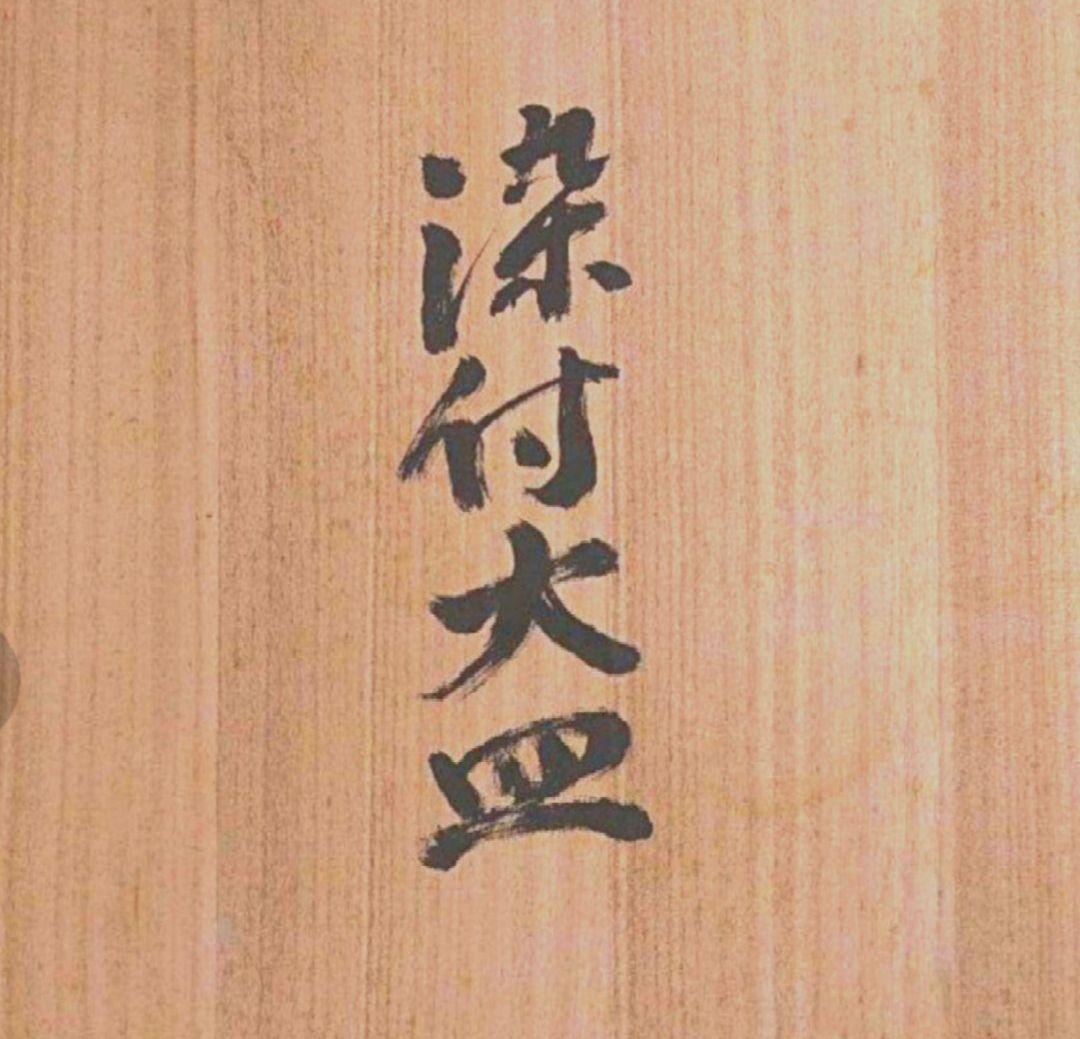 染付大皿